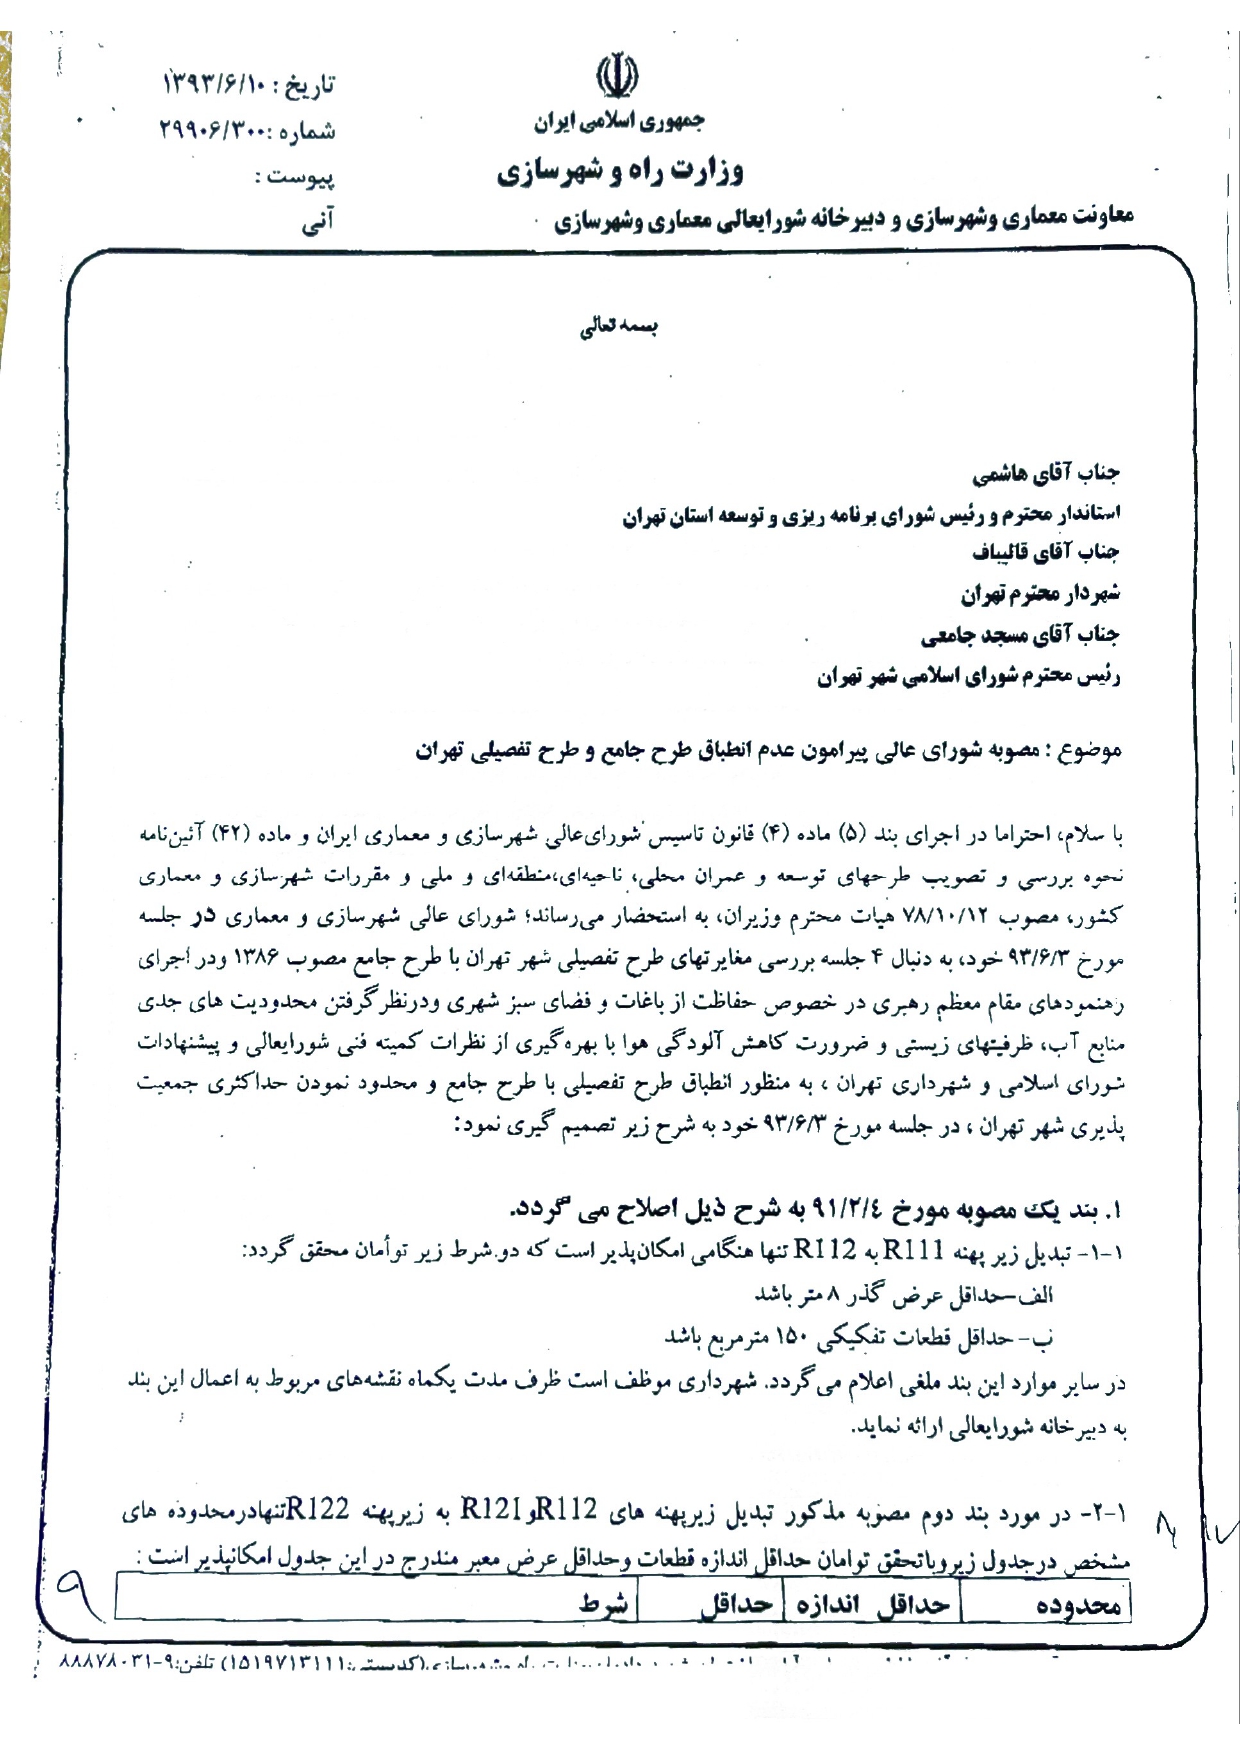 تاریخ : ۱۳۹۳/۶/۱۰
شماره :۲۹۹۰۶/۳۰۰
پیوست :
آنی
جمهوری اسلامی ایران
وزارت راه و شهرسازی
معاونت معماری وشهرسازی و دبیرخانه شورایعالی معماری وشهرسازی
بسمه تعالی
جناب آقای هاشمی
استاندار محترم و رئیس شورای برنامه ریزی و توسعه استان تهران
جناب آقای قالیباف
شهردار محترم تهران
جناب آقای مسجد جامعی
رئیس محترم شورای اسلامی شهر تهران
موضوع : مصوبه شورای عالی پیرامون عدم انطباق طرح جامع و طرح تفصیلی تهران
با سلام، احتراما در اجرای بند (۵) ماده (۴) قانون تاسیس شورای‌عالی شهرسازی و معماری ایران و ماده (۴۲) آئین‌نامه
نحوه بررسی و تصویب طرحهای توسعه و عمران محلی، ناحیه‌ای،منطقه‌ای و ملی و مقررات شهرسازی و معماری
کشور، مصوب ۷۸/۱۰/۱۲ هیات محترم وزیران، به استحضار می‌رساند؛ شورای عالی شهرسازی و معماری در جلسه
مورخ ۹۳/۶/۳ خود، به دنبال ۴ جلسه بررسی مغایرتهای طرح تفصیلی شهر تهران با طرح جامع مصوب ۱۳۸۶ ودر اجرای
رهنمودهای مقام معظم رهبری در خصوص حفاظت از باغات و فضای سبز شهری ودرنظرگرفتن محدودیت های جدی
منابع آب، ظرفیتهای زیستی و ضرورت کاهش آلودگی هوا با بهره‌گیری از نظرات کمیته فنی شورایعالی و پیشنهادات
شورای اسلامی و شهرداری تهران ، به منظور انطباق طرح تفصیلی با طرح جامع و محدود نمودن حداکثری جمعیت
پذیری شهر تهران ، در جلسه مورخ ۹۳/۶/۳ خود به شرح زیر تصمیم گیری نمود:
۱. بند یک مصوبه مورخ ۹۱/۲/٤ به شرح ذیل اصلاح می گردد.
۱-۱- تبدیل زیر پهنه R111 به R112 تنها هنگامی امکان‌پذیر است که دو شرط زیر توأمان محقق گردد:
الف-حداقل عرض گذر ۸ متر باشد
ب- حداقل قطعات تفکیکی ۱۵۰ مترمربع باشد
در سایر موارد این بند ملغی اعلام می‌گردد. شهرداری موظف است ظرف مدت یکماه نقشه‌های مربوط به اعمال این بند
به دبیرخانه شورایعالی ارائه نماید.
۱-۲- در مورد بند دوم مصوبه مذکور تبدیل زیرپهنه های R112و R121 به زیرپهنه R122تنهادرمحدوده های
مشخص درجدول زیروباتحقق توامان حداقل اندازه قطعات وحداقل عرض معبر مندرج در این جدول امکانپذیر است :
محدوده حداقل اندازه حداقل شرط
۹
(کدپستی:۱۵۱۹۷۱۳۱۱۱) تلفن:۹-۸۸۸۷۸۰۳۱